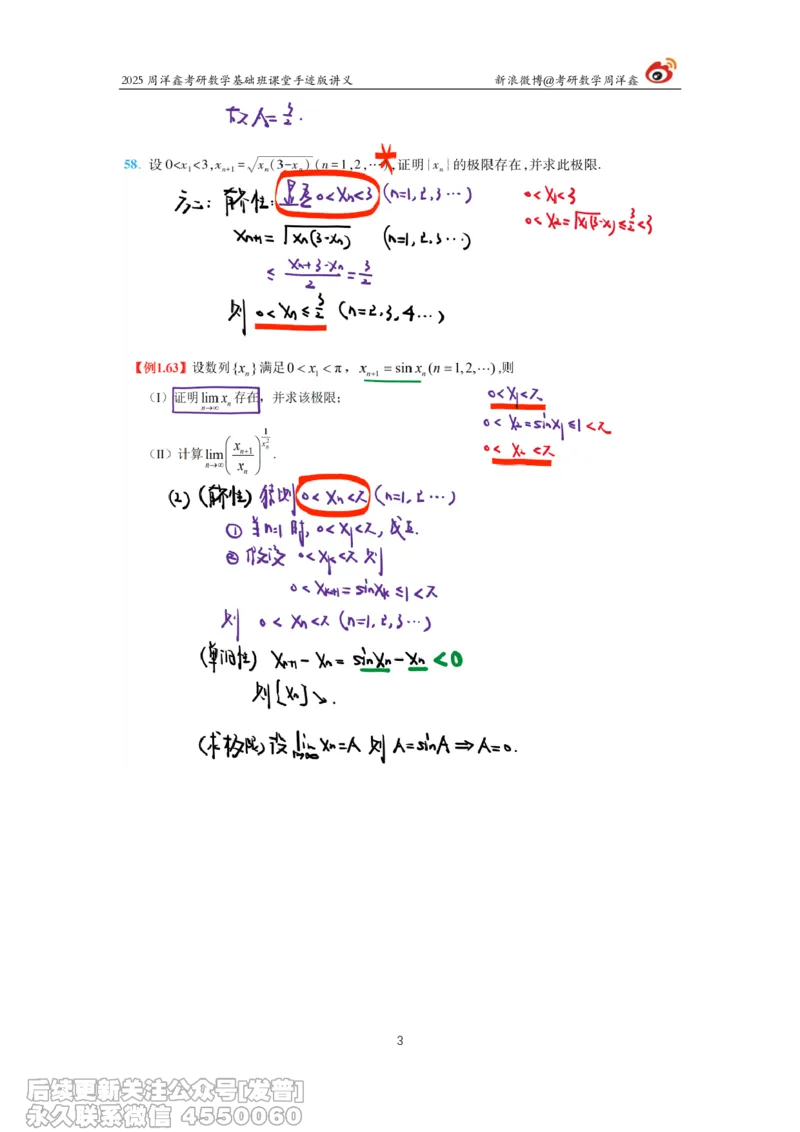 2025 周洋鑫考研数学基础班课堂手迹版讲义 新浪微博@考研数学周洋鑫
故 A=3/2.
58. 设 0<x₁<3, xₙ₊₁=√(xₙ(3-xₙ)) (n=1,2,⋯),证明|xₙ|的极限存在,并求此极限.
方二: 有界性: 显然 0<xₙ<3 (n=1,2,3⋯) 0<x₁<3
0<x₂=√(x₁(3-x₁))≤3/2<3
xₙ₊₁=√(xₙ(3-xₙ)) (n=1,2,3⋯)
≤ (xₙ+3-xₙ)/2 = 3/2
则 0<xₙ≤3/2 (n=2,3,4⋯)
【例1.63】设数列{xₙ}满足0<x₁<π, xₙ₊₁=sin xₙ(n=1,2,⋯),则
(Ⅰ)证明lim_{n→∞} xₙ存在,并求该极限; 0<x₁<π
0<x₂=sinx₁≤1<π
(Ⅱ)计算lim_{n→∞} (xₙ₊₁/xₙ)^{1/xₙ²}. 0<x₂<π
(2) (有界性) 猜出 0<xₙ<π (n=1,2⋯)
① 当n=1时, 0<x₁<π, 成立.
② 假设 0<xₖ<π 则
0<xₖ₊₁=sinxₖ≤1<π
则 0<xₙ<π (n=1,2,3⋯)
(单调性) xₙ₊₁-xₙ=sinxₙ-xₙ<0
则{xₙ}↘.
(求极限) 设 lim_{n→∞} xₙ=A 则 A=sinA⇒A=0.
3
后续更新关注公众号[发普]
永久联系微信 4550060